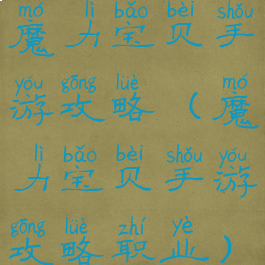 mó lì bǎo bèi shǒu
魔力宝贝手
yóu gōng lüè mó
游攻略（魔
lì bǎo bèi shǒu yóu
力宝贝手游
gōng lüè zhí yè
攻略职业）